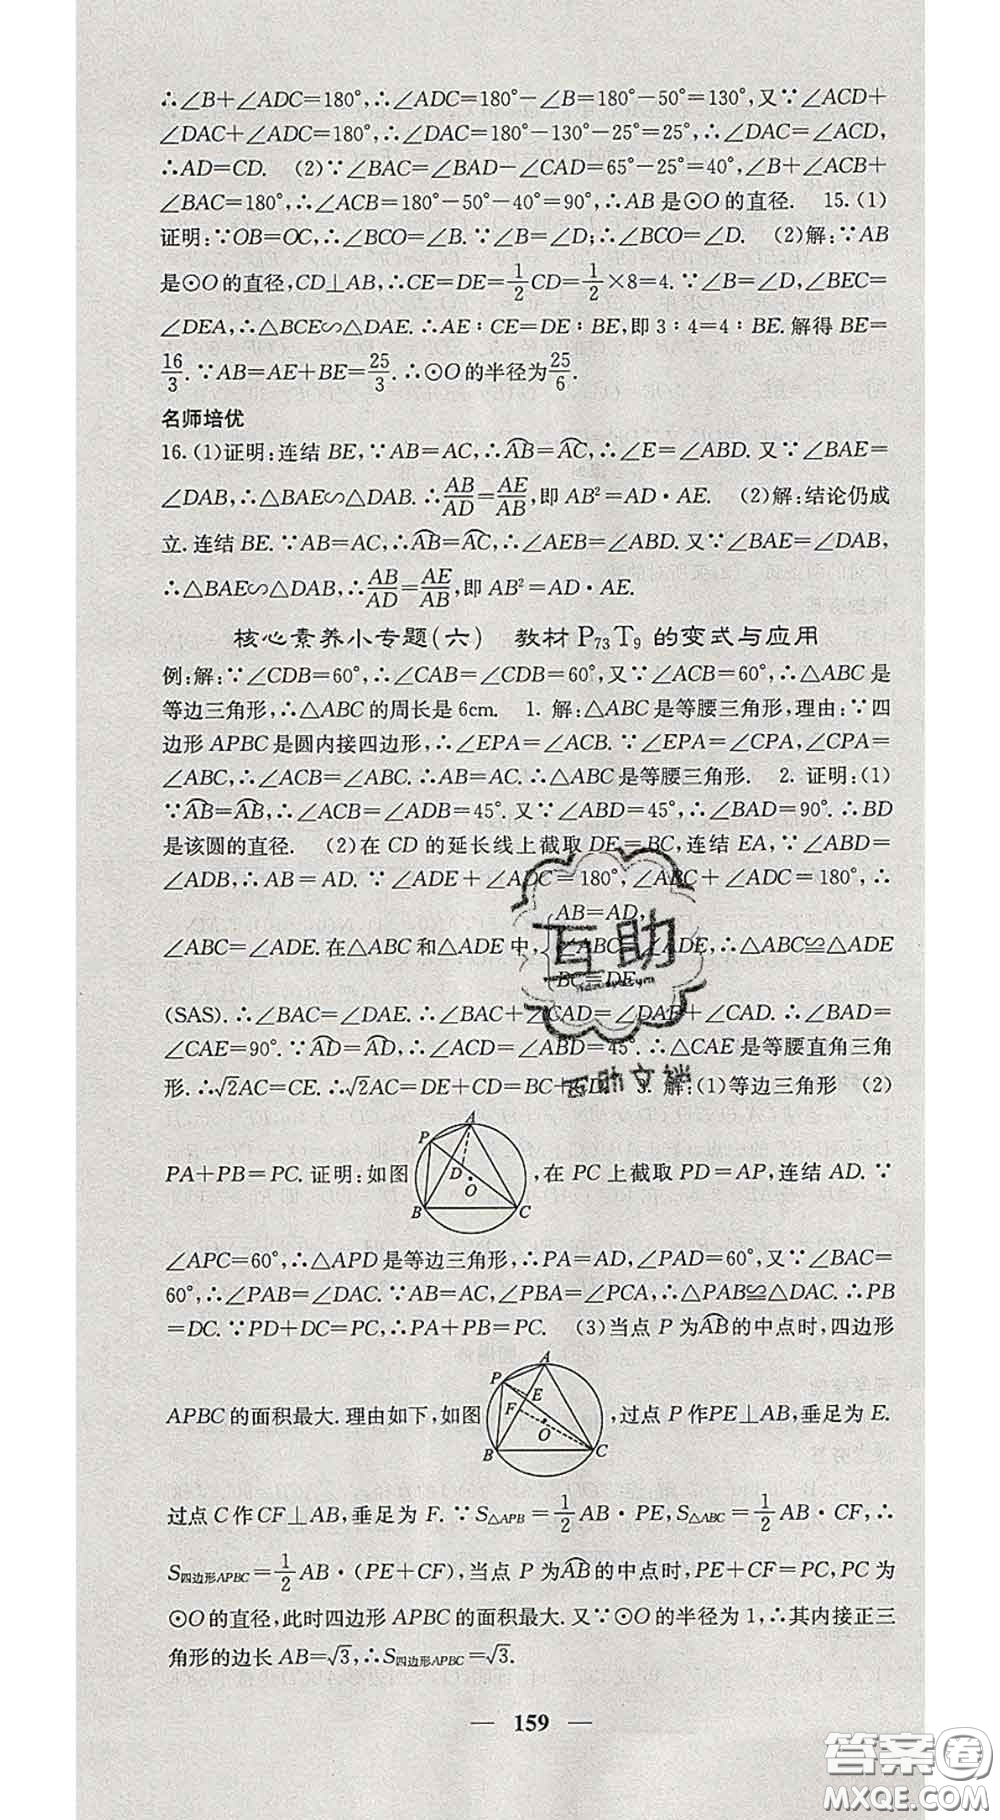 ∴∠B+∠ADC=180°,∴∠ADC=180°-∠B=180°-50°=130°,又∵∠ACD+
∠DAC+∠ADC=180°,∴∠DAC=180°-130°-25°=25°,∴∠DAC=∠ACD,
∴AD=CD. (2)∵∠BAC=∠BAD-∠CAD=65°-25°=40°,∠B+∠ACB+
∠BAC=180°,∴∠ACB=180°-50°-40°=90°,∴AB是⊙O的直径. 15.(1)
证明:∵OB=OC,∴∠BCO=∠B.∵∠B=∠D;∴∠BCO=∠D. (2)解:∵AB
是⊙O的直径,CD⊥AB,∴CE=DE=1/2CD=1/2×8=4.∵∠B=∠D,∠BEC=
∠DEA,∴△BCE∽△DAE.∴AE∶CE=DE∶BE,即3∶4=4∶BE.解得BE=
16/3.∵AB=AE+BE=25/3.∴⊙O的半径为25/6.
名师培优
16.(1)证明:连结BE,∵AB=AC,∴AB⌒=AC⌒,∴∠E=∠ABD.又∵∠BAE=
∠DAB,∴△BAE∽△DAB.∴AB/AD=AE/AB,即AB²=AD·AE. (2)解:结论仍成
立.连结BE.∵AB=AC,∴AB⌒=AC⌒,∴∠AEB=∠ABD.又∵∠BAE=∠DAB,
∴△BAE∽△DAB,∴AB/AD=AE/AB,即AB²=AD·AE.
核心素养小专题(六) 教材P₇₃T₉的变式与应用
例:解:∵∠CDB=60°,∴∠CAB=∠CDB=60°,又∵∠ACB=60°,∴△ABC是
等边三角形,∴△ABC的周长是6cm. 1.解:△ABC是等腰三角形,理由:∵四
边形APBC是圆内接四边形,∴∠EPA=∠ACB.∵∠EPA=∠CPA,∠CPA=
∠ABC,∴∠ACB=∠ABC.∴AB=AC.∴△ABC是等腰三角形. 2.证明:(1)
∵AB⌒=AB⌒,∴∠ACB=∠ADB=45°.又∵∠ABD=45°,∴∠BAD=90°.∴BD
是该圆的直径. (2)在CD的延长线上截取DE=BC,连结EA,∵∠ABD=
∠ADB,∴AB=AD.∵∠ADE+∠ADC=180°,∠ABC+∠ADC=180°,∴
AB=AD,
∠ABC=∠ADE.在△ABC和△ADE中,∠ABC=∠ADE,∴△ABC≌△ADE
BC=DE,
(SAS).∴∠BAC=∠DAE.∴∠BAC+∠CAD=∠DAE+∠CAD.∴∠BAD=
∠CAE=90°.∵AD⌒=AD⌒,∴∠ACD=∠ABD=45°.∴△CAE是等腰直角三角
形.∴√2AC=CE.∴√2AC=DE+CD=BC+CD. 3.解:(1)等边三角形 (2)
A P D O B C
PA+PB=PC.证明:如图,在PC上截取PD=AP,连结AD.∵
∠APC=60°,∴△APD是等边三角形,∴PA=AD,∠PAD=60°,又∵∠BAC=
60°,∴∠PAB=∠DAC.∵AB=AC,∠PBA=∠PCA,∴△PAB≌△DAC.∴PB
=DC.∵PD+DC=PC,∴PA+PB=PC. (3)当点P为AB⌒的中点时,四边形
A P E F O B C
APBC的面积最大.理由如下,如图,过点P作PE⊥AB,垂足为E.
过点C作CF⊥AB,垂足为F.∵S△APB=1/2AB·PE,S△ABC=1/2AB·CF,∴
S四边形APBC=1/2AB·(PE+CF),当点P为AB⌒的中点时,PE+CF=PC,PC为
⊙O的直径,此时四边形APBC的面积最大.又∵⊙O的半径为1,∴其内接正三
角形的边长AB=√3,∴S四边形APBC=√3.
— 159 —
互助
答案圈
MXQE.COM